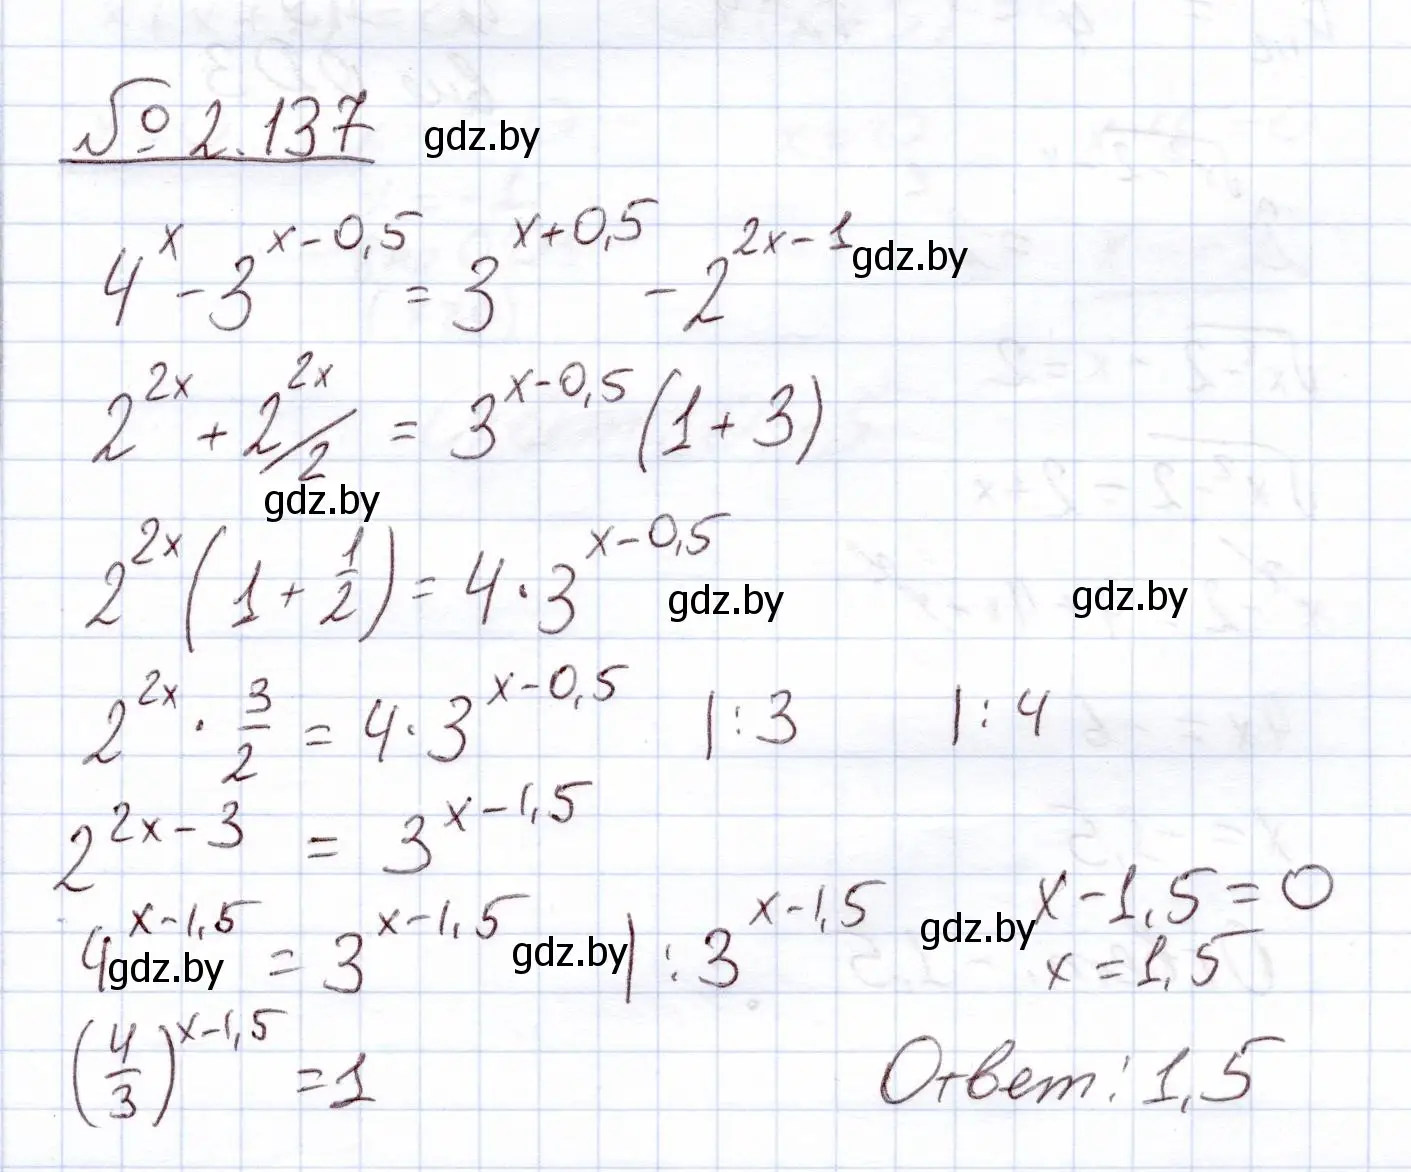 № 2.137 gdz.by
4^x - 3^(x-0,5) = 3^(x+0,5) - 2^(2x-1) gdz.by
2^(2x) + 2^(2x)/2 = 3^(x-0,5) (1+3)
gdz.by
2^(2x) (1 + 1/2) = 4 · 3^(x-0,5) gdz.by gdz.by
2^(2x) · 3/2 = 4 · 3^(x-0,5) | : 3 | : 4
2^(2x-3) = 3^(x-1,5)
4^(x-1,5) = 3^(x-1,5) | : 3^(x-1,5)
gdz.by gdz.by gdz.by
(4/3)^(x-1,5) = 1
x - 1,5 = 0
x = 1,5
Ответ: 1,5